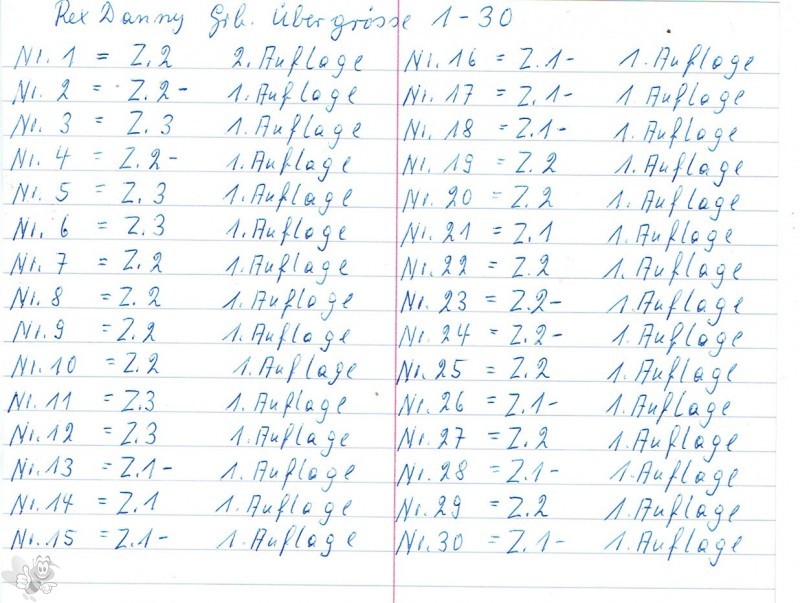 Rex Danny Grb. Übergrösse 1-30
Nr. 1 = Z.2 2. Auflage
Nr. 2 = Z.2- 1. Auflage
Nr. 3 = Z.3 1. Auflage
Nr. 4 = Z.2- 1. Auflage
Nr. 5 = Z.3 1. Auflage
Nr. 6 = Z.3 1. Auflage
Nr. 7 = Z.2 1. Auflage
Nr. 8 = Z.2 1. Auflage
Nr. 9 = Z.2 1. Auflage
Nr. 10 = Z.2 1. Auflage
Nr. 11 = Z.3 1. Auflage
Nr. 12 = Z.3 1. Auflage
Nr. 13 = Z.1- 1. Auflage
Nr. 14 = Z.1 1. Auflage
Nr. 15 = Z.1- 1. Auflage
Nr. 16 = Z.1- 1. Auflage
Nr. 17 = Z.1- 1. Auflage
Nr. 18 = Z.1- 1. Auflage
Nr. 19 = Z.2 1. Auflage
Nr. 20 = Z.2 1. Auflage
Nr. 21 = Z.1 1. Auflage
Nr. 22 = Z.2 1. Auflage
Nr. 23 = Z.2- 1. Auflage
Nr. 24 = Z.2- 1. Auflage
Nr. 25 = Z.2 1. Auflage
Nr. 26 = Z.1- 1. Auflage
Nr. 27 = Z.2 1. Auflage
Nr. 28 = Z.1- 1. Auflage
Nr. 29 = Z.2 1. Auflage
Nr. 30 = Z.1- 1. Auflage